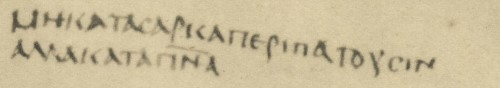 ΜΗΚΑΤΑϹΑΡΚΑΠΕΡΙΠΑΤΟΥϹΙΝ
ΑΛΛΑΚΑΤΑΠ̅Ν̅Α̅